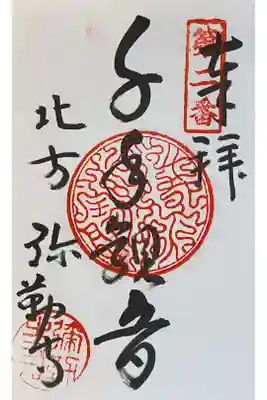 奉拝
第二番
千手観音
北方 弥勒寺